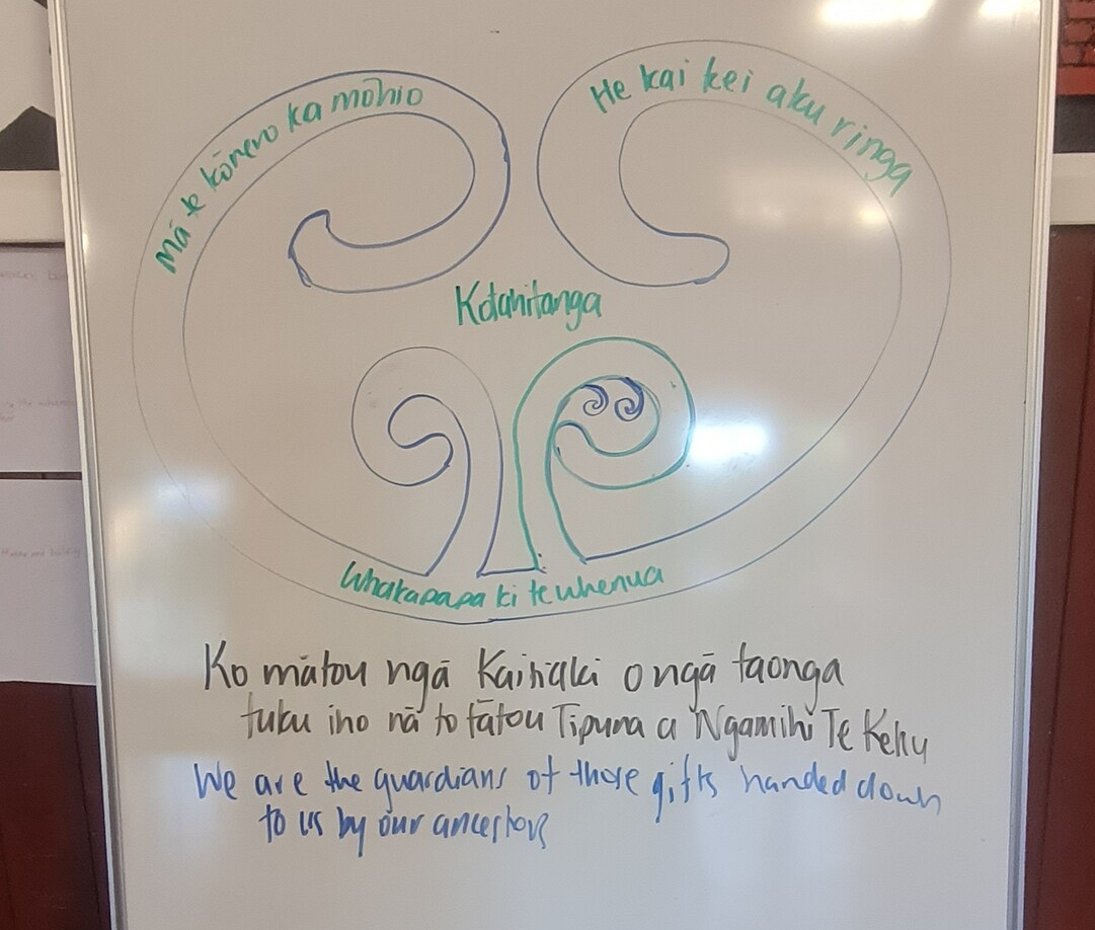 Mā te kōrero ka mohio
He kai kei aku ringa
Kotahitanga
Whakapapa ki te whenua
Ko mātou ngā Kaitiaki o ngā taonga
tuku iho nā to tātou Tipuna a Ngamihi Te Kehu
We are the guardians of those gifts handed down
to us by our ancestors